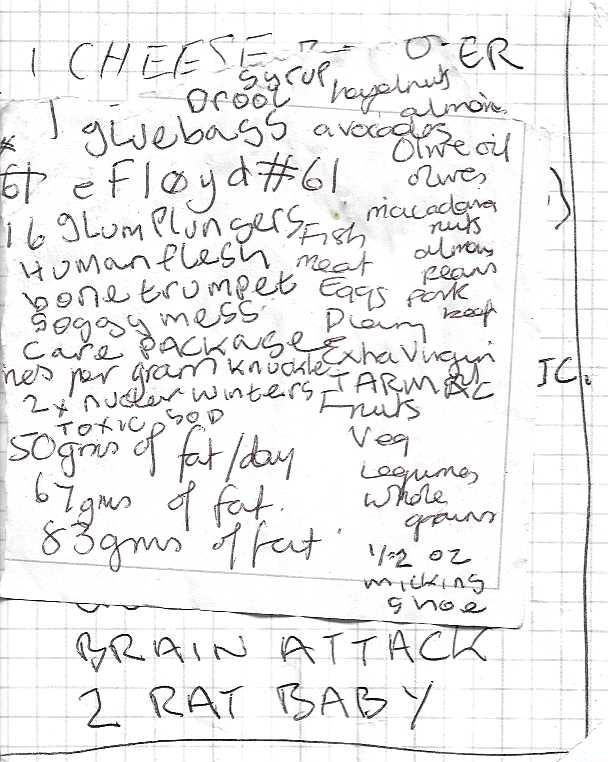 1 CHEESE OER
syrup
Drool hazelnuts
1 gluebags avocados
Olive oil
61 eFløyd#61 olives
16 glumplungers macadama nuts
Human flesh Fish
bone trumpet meat
soggy mess Eggs pork
Care PACKAGE Diary
nes per gram knuckle Extra Virgin
2x nuclear winters TARMAC IC.
TOXIC SOD nuts
50gms of fat/day Veg
67gms of fat. Legumes
whole grains
83gms of fat
1/2 oz
micking
shoe
BRAIN ATTACK
2 RAT BABY